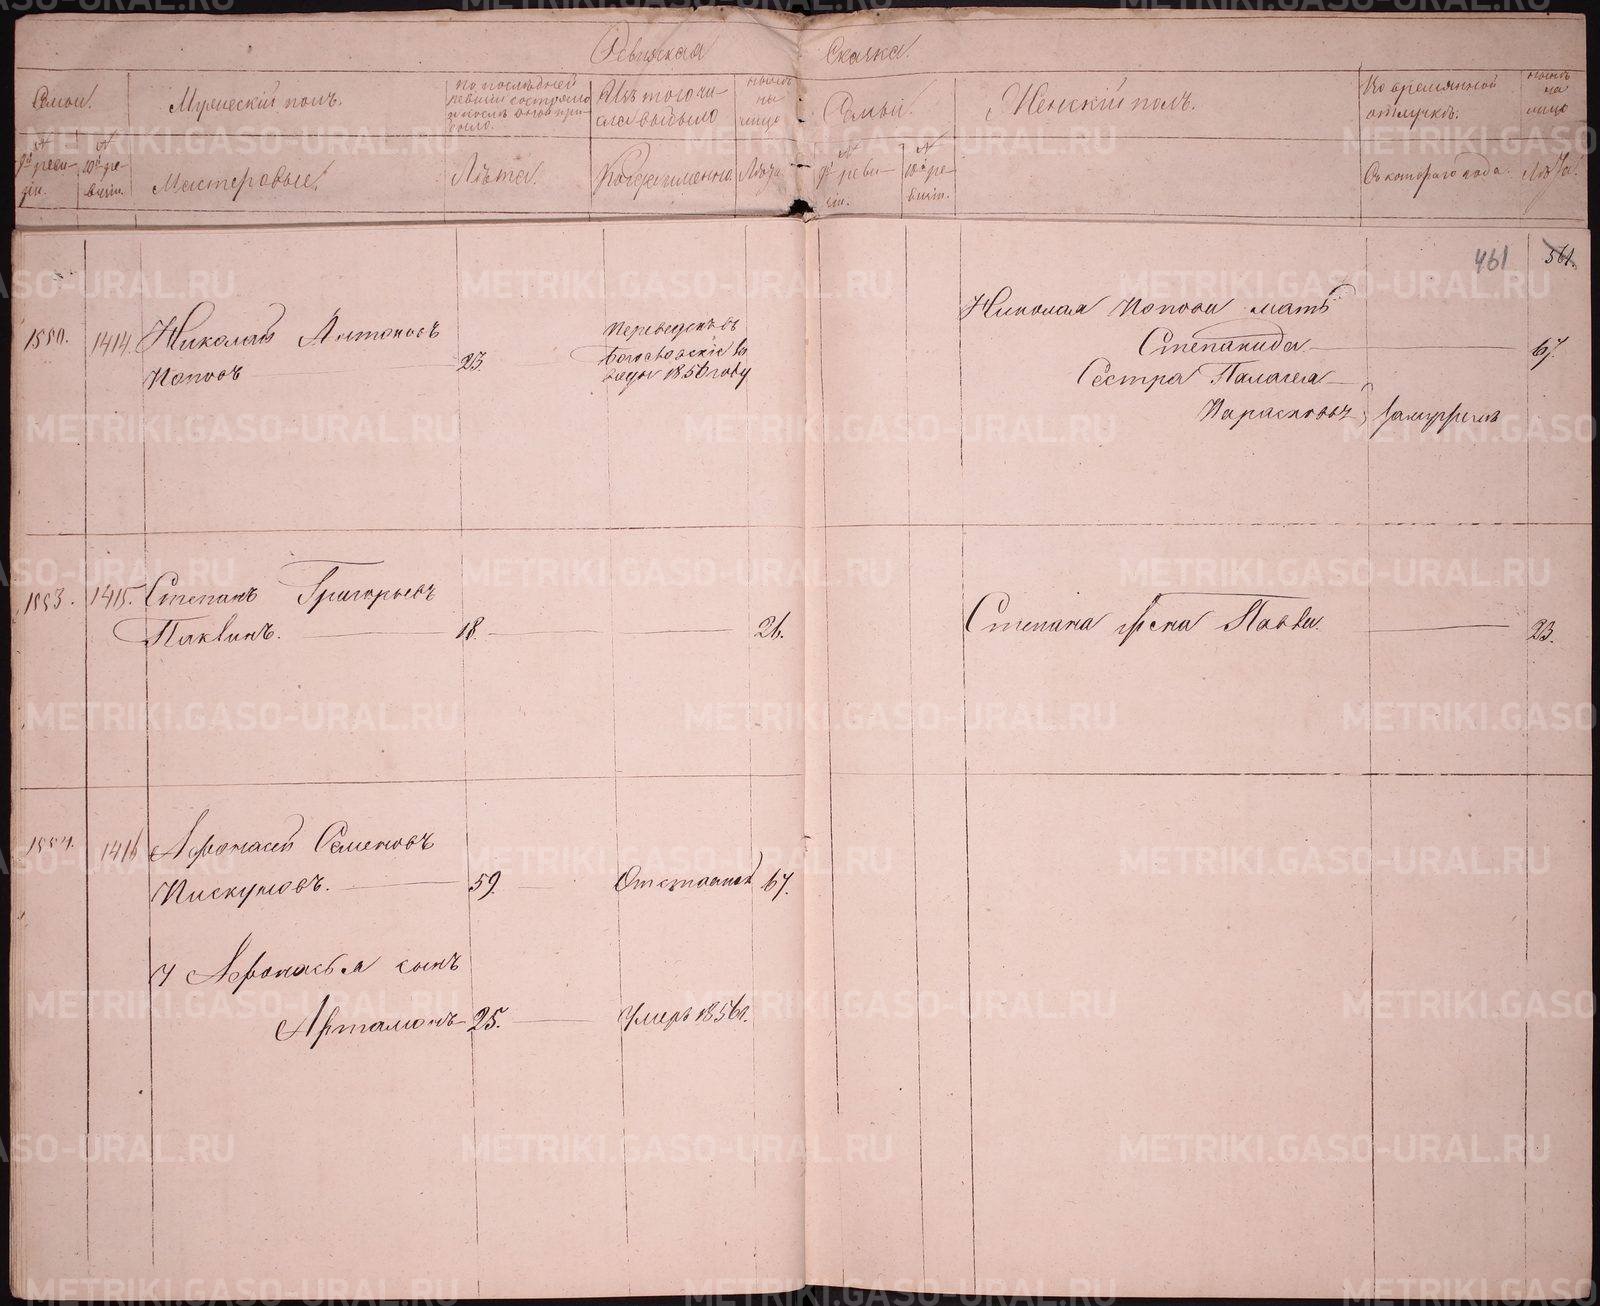 Ревизская Сказка.
Семьи.
Мужескій полъ.
По послѣдней ревизіи состояло и послѣ оной прибыло.
Изъ того числа выбыло
нынѣ на лицо
Семьи.
Женскій полъ.
Во временной отлучкѣ.
нынѣ на лицо
№ 9й ревизіи.
№ 10й ревизіи.
Мастеровые.
Лѣта.
Когда именно
Лѣта
№ 9й ревизіи.
№ 10й ревизіи.
Съ котораго года.
Лѣта.
461 561.
1550. 1414. Николай Антоновъ
Поповъ 23.
Переведенъ въ
Богословскіе за
воды 1856 году
Николая Попова мать
Степанида 67.
Сестра Палагея
Парасковья замужемъ
1553. 1415. Степанъ Григорьевъ
Паквинъ. 18. 26.
Степана жена Павла. 23.
1554. 1416 Афонасей Семеновъ
Пискуновъ. 59. Отставной 67.
У Афонасья сынъ
Артамонъ 25. Умеръ 1856г.
METRIKI.GASO-URAL.RU